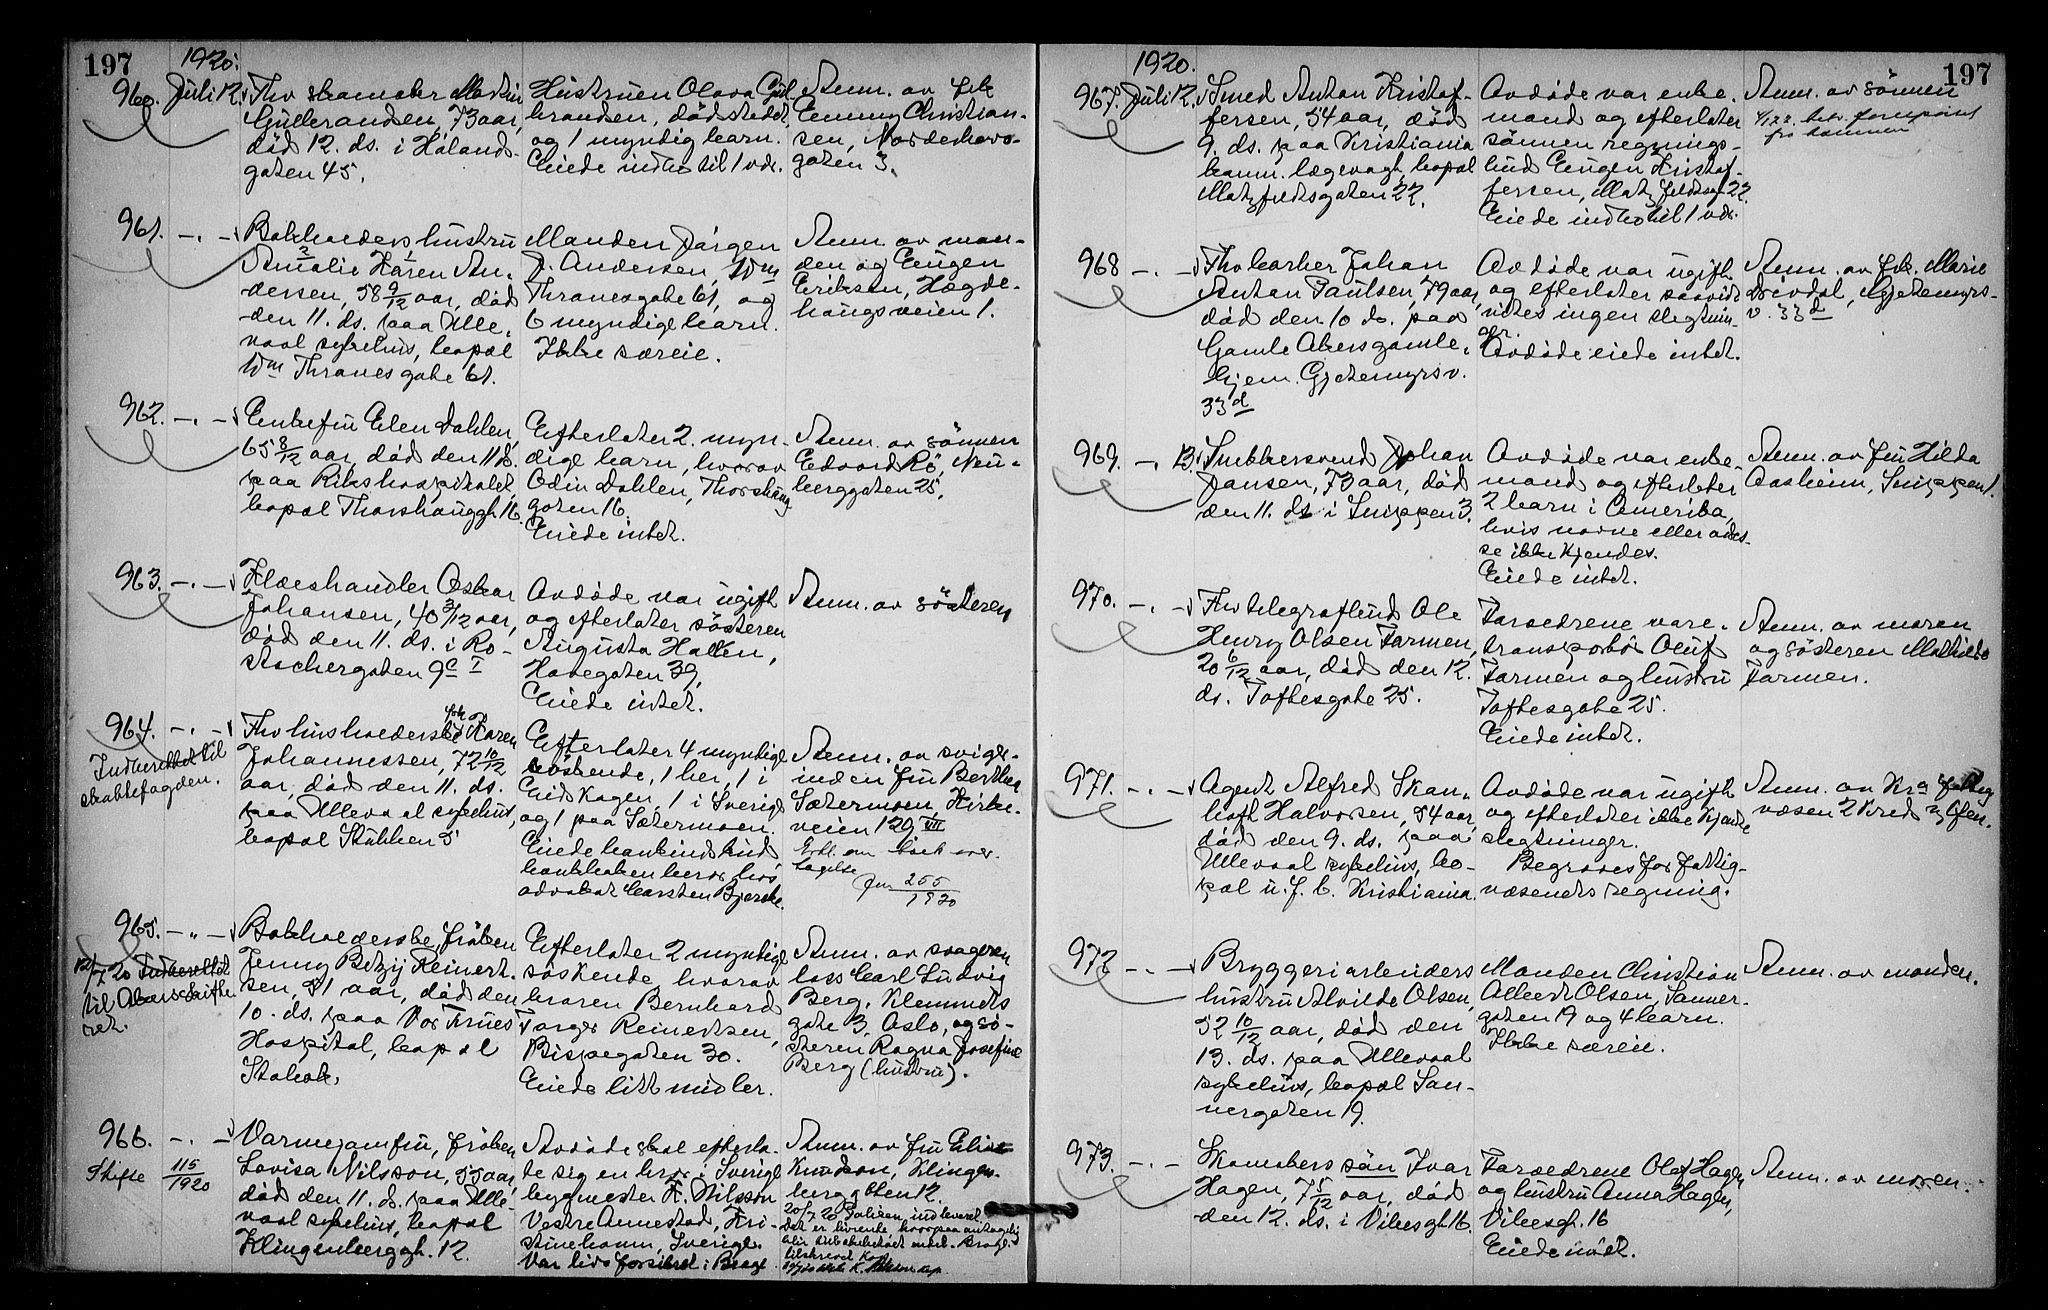 197
1920.
960. Juli 12. Fhv skomaker Martin
Gulbrandsen, 73 aar,
død 12. ds. i Hølands-
gaten 45.
Hustruen Olava Gul
brandsen, død stedet,
og 1 myndig barn.
Eiede indbo til 1 vdr.
Anm. av frk
Emmy Christian-
sen, Norderhovs-
gaten 3.
961. -.- Bokholders hustru
Amalie Karen An-
dersen, 58 9/12 aar, død
den 11. ds. paa Ulle-
vaal sykehus, bopæl
Wm Thranesgate 61.
Manden Jørgen
J. Andersen, Wm
Thranesgate 61, og
6 myndige barn.
Ikke særeie.
Anm. av man-
den og Eugen
Eriksen, Hægde-
haugsveien 1.
962. -.- Enkefru Elen Dahlen,
65 8/12 aar, død den 11 ds.
paa Rikshospitalet,
bopæl Thorshauggt. 16.
Efterlater 2 myn-
dige barn, hvorav
Odin Dahlen, Thorshaug
gaten 16.
Eiede intet.
Anm. av sønnen
Edvard Rö, Neu-
berggaten 25.
963. -.- Flæskhandler Oskar
Johansen, 40 3/12 aar,
død den 11. ds. i Ro-
stochergaten 9c I
Avdøde var ugift
og efterlater søsteren
Augusta Hallen,
Havegaten 39,
Eiede intet.
Anm. av søsteren
964. -.- Fhv husholderske frk Karen
Johannessen, 72 10/12
aar, død den 11. ds.
paa Ullevaal sykehus,
bopæl Stubben 5
Indberettet til
skattefogden.
Efterlater 4 myndige
søskende, 1 her, 1 i
Eidskogen, 1 i Sverige
og 1 paa Sætermoen.
Eiede bankindskud
bankboken beror hos
advokat Carsten Bjercke.
Anm. av sviger-
inden fru Berthea
Sætermoen, Kirke-
veien 129 VII
Erkl. om boets over-
tagelse
Jnr 255/1920
965. -"- Bokholderske, frøken
Jenny Betzy Reinert-
sen, 51 aar, død den
10. ds. paa Vor Frues
Hospital, bopæl
Stabæk.
12/7 20 Indberettet
til Aker skifte
ret.
Efterlater 2 myndige
søskende, hvorav
broren Bernhard
Torger Reinertsen,
Bispegaten 30.
Eiede litt midler.
Anm. av svogeren
loss Carl Ludvig
Berg, Klemmets
gate 3, Oslo, og sø-
steren Ragna Josefine
Berg (hustru).
966. -.- Varmejomfru, frøken
Lovisa Nilsson, 55 aar,
død den 11. ds. paa Ulle-
vaal sykehus, bopæl
Klingenberggt. 12.
Skifte 115/1920
Avdøde skal efterla-
te sig en bror i Sverige
bygmester K. Nilsson
Vestre Annestad, Kri-
stinehamn, Sverige.
Var livsforsikret i Brage
Anm. av fru Elise
Knudsen, Klingen-
berggaten 12.
20/7 20 Polisen indleveret.
197
1920.
967. Juli 12. Smed Anton Kristof-
fersen, 54 aar, død
9. ds. paa Kristiania
komm. lægevagt, bopæl
Matzfeldtsgaten 22.
Avdøde var enke-
mand og efterlater
sønnen regnings-
bud Eugen Kristof-
fersen, Matzfeldtsgt 22.
Eiede indbo til 1 vdr.
Anm. av sønnen
968 -.- Fhv barber Johan
Anton Paulsen, 79 aar,
død den 10 ds. paa
Gamle Akers gamle-
hjem. Gjetemyrsv.
33 d
Avdøde var ugift
og efterlater saavidt
vites ingen slegtnin-
ger.
Avdøde eiede intet.
Anm. av frk. Marie
Drivdal, Gjetemyrs-
v. 33 d
969. -. 13. Snekkersvend Johan
Jansen, 73 aar, død
den 11. ds i Snippen 3.
Avdøde var enke-
mand og efterlater
2 barn i Amerika,
hvis navne eller adres-
se ikke kjendes.
Eiede intet.
Anm. av fru Hilda
Aasheim, Snippen 1.
970. -.- Fhv telegrafbud Ole
Henry Olsen Farmen,
20 6/12 aar, død den 12.
ds. Toftesgate 25.
Forældrene vare-
transportør Oluf
Farmen og hustru
Toftesgate 25.
Eiede intet.
Anm. av moren
og søsteren Mathilde
Farmen.
971. -.- Agent Alfred Skan-
hoft Halvorsen, 54 aar,
død den 9. ds. paa
Ullevaal sykehus, bo-
pæl u. f. b. Kristiania.
Avdøde var ugift
og efterlater ikke kjendte
slegtninger.
Begraves for fattig-
væsenets regning.
Anm. av Kra Fattig
væsen 2 Kreds
972 -.- Bryggeriarbeiders
hustru Alvilde Olsen,
52 10/12 aar, død den
13. ds. paa Ullevaal
sykehus, bopæl San-
nergaten 19.
Manden Christian
Albert Olsen, Sanner-
gaten 19 og 4 barn.
Ikke særeie.
Anm. av manden.
973. -.- Skomakers søn Ivar
Hagen, 7 5/12 aar, død
den 12. ds. i Vibesgt. 16.
Forældrene Olaf Hagen
og hustru Anna Hagen,
Vibesgt. 16
Eiede intet.
Anm. av moren.